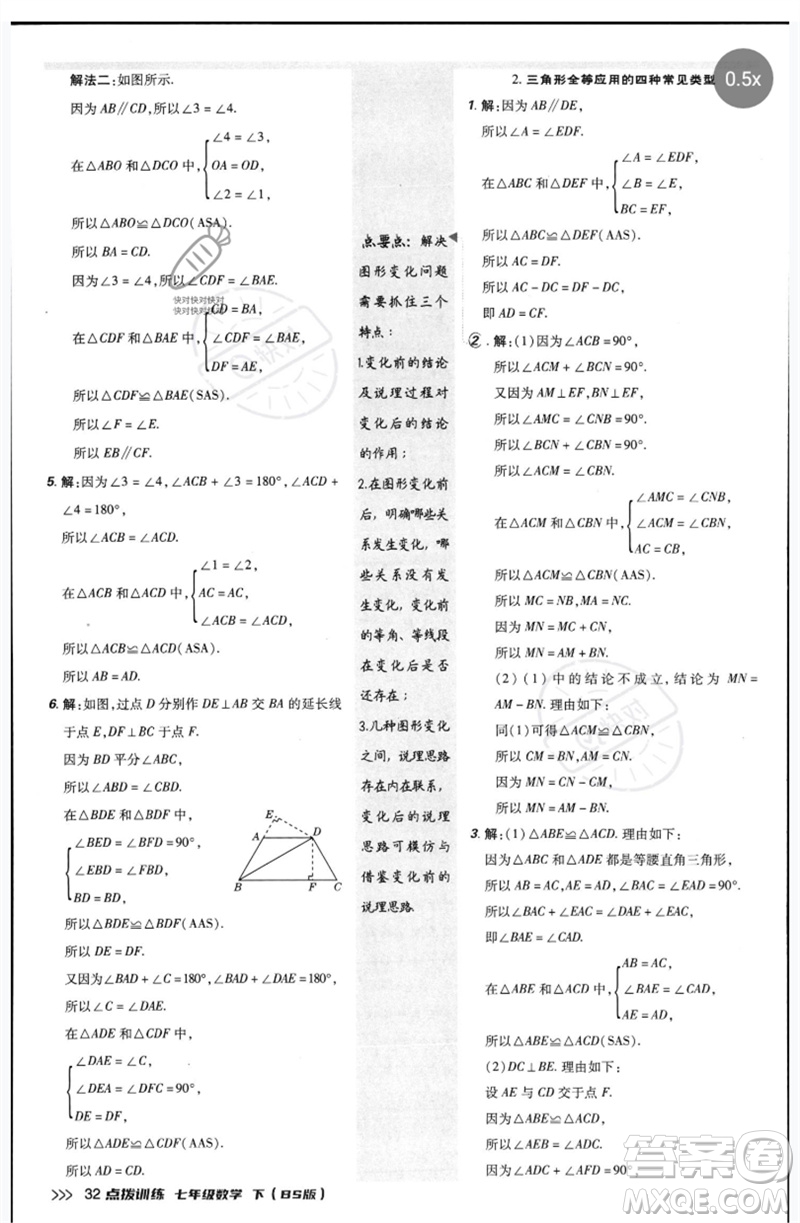 解法二:如图所示.
因为 AB∥CD,所以∠3 = ∠4.
在△ABO 和△DCO 中,
∠4 = ∠3,
OA = OD,
∠2 = ∠1,
所以△ABO≌△DCO(ASA).
所以 BA = CD.
因为∠3 = ∠4,所以∠CDF = ∠BAE.
在△CDF 和△BAE 中,
CD = BA,
∠CDF = ∠BAE,
DF = AE,
所以△CDF≌△BAE(SAS).
所以∠F = ∠E.
所以 EB∥CF.
5. 解:因为∠3 = ∠4,∠ACB + ∠3 = 180°,∠ACD +
∠4 = 180°,
所以∠ACB = ∠ACD.
在△ACB 和△ACD 中,
∠1 = ∠2,
AC = AC,
∠ACB = ∠ACD,
所以△ACB≌△ACD(ASA).
所以 AB = AD.
6. 解:如图,过点 D 分别作 DE⊥AB 交 BA 的延长线
于点 E,DF⊥BC 于点 F.
因为 BD 平分∠ABC,
所以∠ABD = ∠CBD.
在△BDE 和△BDF 中,
∠BED = ∠BFD = 90°,
∠EBD = ∠FBD,
BD = BD,
E
A
D
B
F
C
所以△BDE≌△BDF(AAS).
所以 DE = DF.
又因为∠BAD + ∠C = 180°,∠BAD + ∠DAE = 180°,
所以∠C = ∠DAE.
在△ADE 和△CDF 中,
∠DAE = ∠C,
∠DEA = ∠DFC = 90°,
DE = DF,
所以△ADE≌△CDF(AAS).
所以 AD = CD.
点要点:解决
图形变化问题
需要抓住三个
特点:
1.变化前的结论
及说理过程对
变化后的结论
的作用;
2.在图形变化前
后,明确哪些关
系发生变化,哪
些关系没有发
生变化,变化前
的等角、等线段
在变化后是否
还存在;
3.几种图形变化
之间,说理思路
存在内在联系,
变化后的说理
思路可模仿与
借鉴变化前的
说理思路.
2. 三角形全等应用的四种常见类型
0.5x
1. 解:因为 AB∥DE,
所以∠A = ∠EDF.
在△ABC 和△DEF 中,
∠A = ∠EDF,
∠B = ∠E,
BC = EF,
所以△ABC≌△DEF(AAS).
所以 AC = DF.
所以 AC - DC = DF - DC,
即 AD = CF.
②. 解:(1)因为∠ACB = 90°,
所以∠ACM + ∠BCN = 90°.
又因为 AM⊥EF,BN⊥EF,
所以∠AMC = ∠CNB = 90°.
所以∠BCN + ∠CBN = 90°.
所以∠ACM = ∠CBN.
在△ACM 和△CBN 中,
∠AMC = ∠CNB,
∠ACM = ∠CBN,
AC = CB,
所以△ACM≌△CBN(AAS).
所以 MC = NB,MA = NC.
因为 MN = MC + CN,
所以 MN = AM + BN.
(2) (1) 中的结论不成立,结论为 MN =
AM - BN. 理由如下:
同(1)可得△ACM≌△CBN(AAS),
所以 CM = BN,AM = CN.
因为 MN = CN - CM,
所以 MN = AM - BN.
3. 解:(1)△ABE≌△ACD. 理由如下:
因为△ABC 和△ADE 都是等腰直角三角形,
所以 AB = AC,AE = AD,∠BAC = ∠EAD = 90°.
所以∠BAC + ∠EAC = ∠DAE + ∠EAC,
即∠BAE = ∠CAD.
在△ABE 和△ACD 中,
AB = AC,
∠BAE = ∠CAD,
AE = AD,
所以△ABE≌△ACD(SAS).
(2)DC⊥BE. 理由如下:
设 AE 与 CD 交于点 F.
因为△ABE≌△ACD,
所以∠AEB = ∠ADC.
因为∠ADC + ∠AFD = 90°,
>>> 32 点拨训练 七年级数学 下(BS版)
快对快对快对
快对快对快对